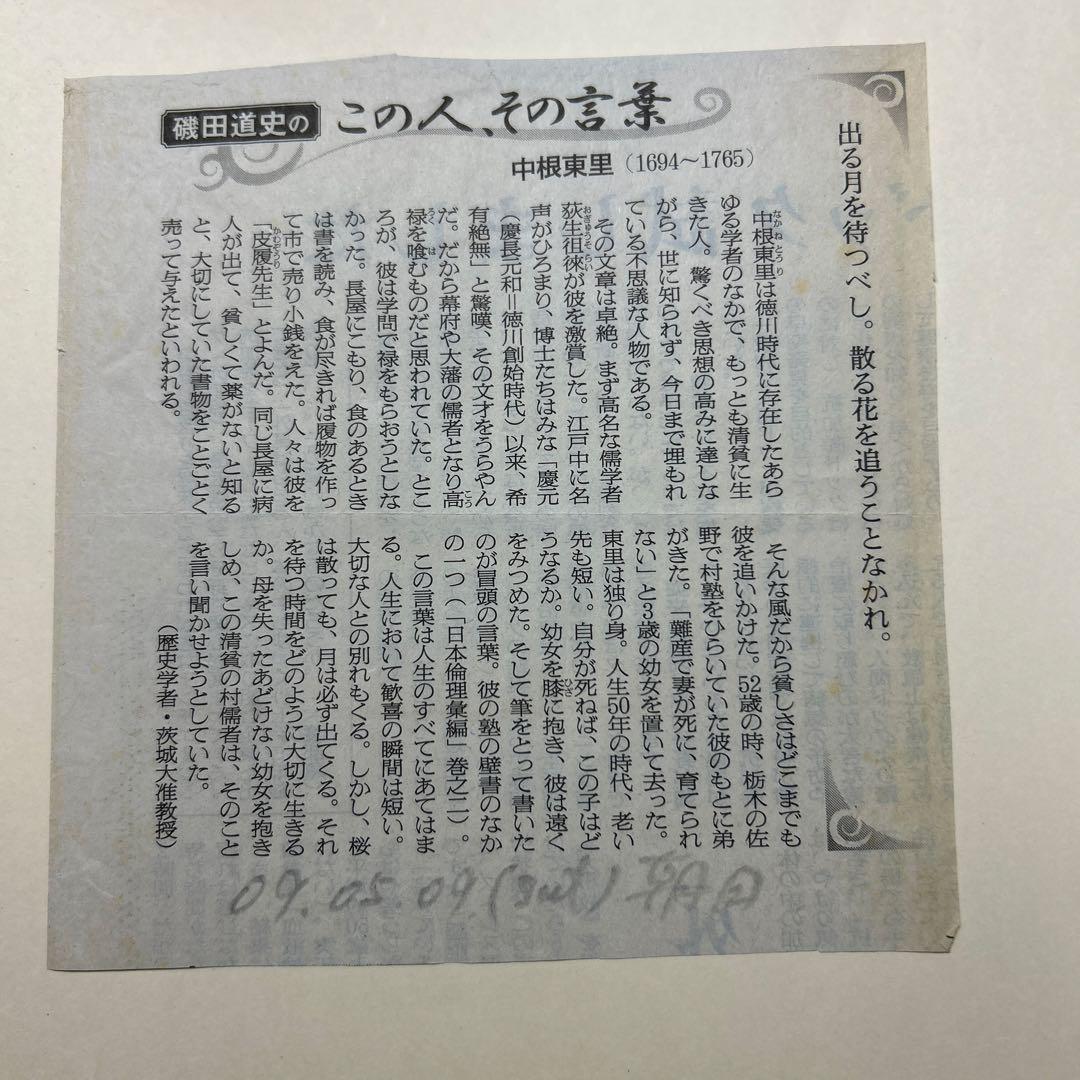 磯田道史の
この人、その言葉
中根東里（1694〜1765）
出る月を待つべし。散る花を追うことなかれ。
中根東里は徳川時代に存在したあら
ゆる学者のなかで、もっとも清貧に生
きた人。驚くべき思想の高みに達しな
がら、世に知られず、今日まで埋もれ
ている不思議な人物である。
その文章は卓絶。まず高名な儒学者
荻生徂徠が彼を激賞した。江戸中に名
声がひろまり、博士たちはみな「慶元
（慶長元和＝徳川創始時代）以来、希
有絶無」と驚嘆、その文才をうらやん
だ。だから幕府や大藩の儒者となり高
禄を喰むものだと思われていた。とこ
ろが、彼は学問で禄をもらおうとしな
かった。長屋にこもり、食のあるとき
は書を読み、食が尽きれば履物を作っ
て市で売り小銭をえた。人々は彼を
「皮履先生」とよんだ。同じ長屋に病
人が出て、貧しくて薬がないと知る
と、大切にしていた書物をことごとく
売って与えたといわれる。
そんな風だから貧しさはどこまでも
彼を追いかけた。52歳の時、栃木の佐
野で村塾をひらいていた彼のもとに弟
がきた。「難産で妻が死に、育てられ
ない」と3歳の幼女を置いて去った。
東里は独り身。人生50年の時代、老い
先も短い。自分が死ねば、この子はど
うなるか。幼女を膝に抱き、彼は遠く
をみつめた。そして筆をとって書いた
のが冒頭の言葉。彼の塾の壁書のなか
の一つ（「日本倫理彙編」巻之二）。
この言葉は人生のすべてにあてはま
る。人生において歓喜の瞬間は短い。
大切な人との別れもくる。しかし、桜
は散っても、月は必ず出てくる。それ
を待つ時間をどのように大切に生きる
か。母を失ったあどけない幼女を抱き
しめ、この清貧の村儒者は、そのこと
を言い聞かせようとしていた。
（歴史学者・茨城大准教授）